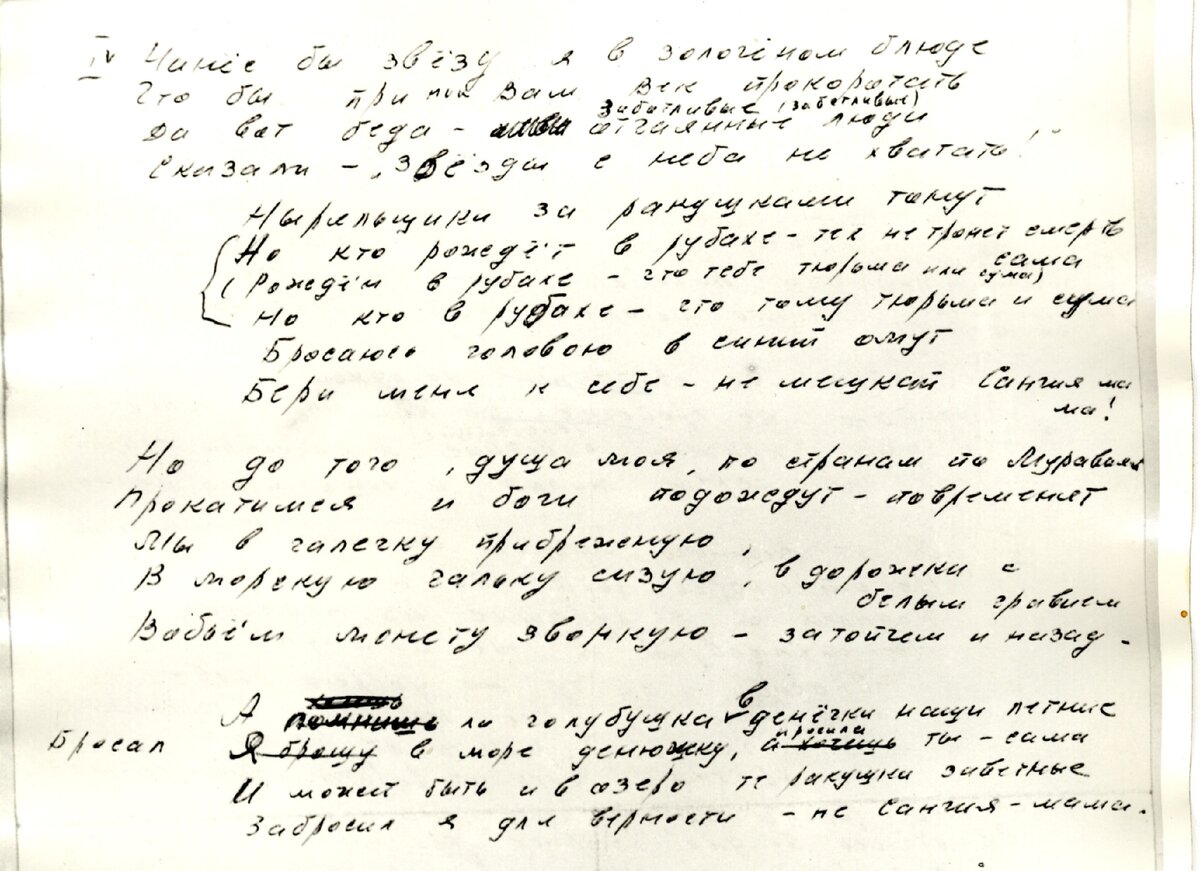 IV Чинёс бы звёзду я в золочёном блюде
Что бы при них Вам век прокоротать
заботливые (заботливые)
Да вот беда - отчаянные люди
Сказали - "Звёзды с неба не хватать!"
Ныряльщики за ракушками тонут
Но кто рождён в рубахе - тех не тронет смерть сама
(Рождён в рубахе - что тебе тюрьма или сума)
Но кто в рубахе - что тому тюрьма и сума
Бросаюсь головою в синий омут
Бери меня к себе - не мешкай Сангия ма
ма!
Но до того, душа моя, по странам по Муравиям
Прокатимся и боги подождут - повременят
Мы в галечку прибрежную,
В морскую гальку сизую, в дорожки с
белым гравием
Вобьём монету звонкую - затопчем и назад -
А помнишь ли голубушка в денёчки наши летние
Бросал Я брошу в море денюжку, просила а хочешь ты - сама
И может быть и в озеро те ракушки заветные
Забросил я для верности - не Сангия-мама.